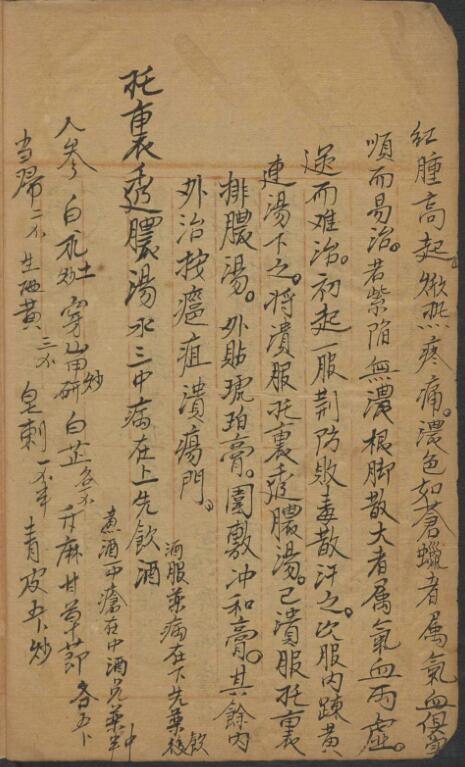 紅腫高起。焮热疼痛。濃色如蒼蠟者属氣血俱實
順而易治。若紫陷無濃根脚散大者属氣血兩虛。
逆而难治。初起一服荆防敗毒散汗之。次服内踈黄
連湯下之。将潰服托裏透膿湯。已潰服托裏
排膿湯。外貼琥珀膏。圍敷冲和膏。其餘内
外治按癰疽潰瘍門。
托裏透膿湯 水三中病在上先飲酒
酒服薬病在下先薬後飲
煮酒一中瘡在中酒兑薬半中
人參 白朮土炒 穿山甲炒研 白芷各不 升麻 甘草節各五卜
当歸二不 生地黄三不 皂刺一不半 青皮五卜炒